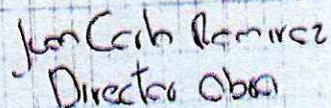 Juan Carlos Ramirez
Director Obra